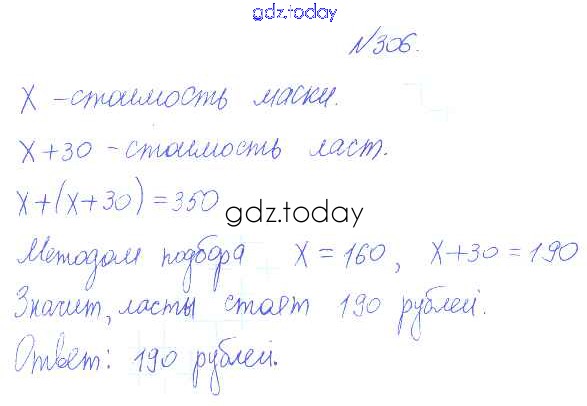 gdz.today
№306.
x – стоимость маски.
x+30 – стоимость ласт.
x+(x+30)=350
gdz.today
Методом подбора x=160, x+30=190
Значит, ласты стоят 190 рублей.
Ответ: 190 рублей.